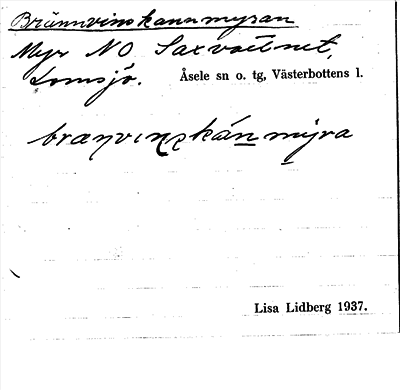 Brännvinskannmyran
Myr NO Saxvattnet,
Lomsjö. Åsele sn o. tg, Västerbottens l.
bræṇvinskánmýra
Lisa Lidberg 1937.